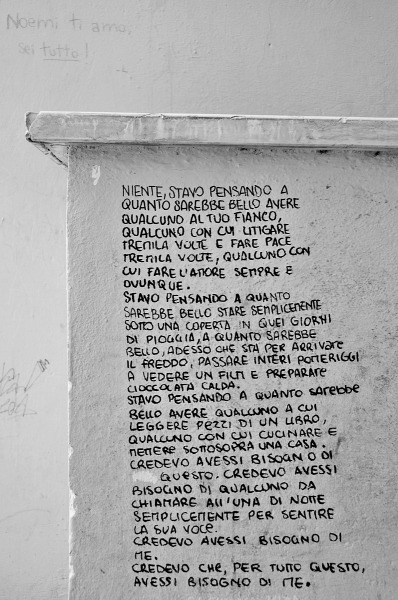 Noemi ti amo,
sei tutto!
NIENTE, STAVO PENSANDO A
QUANTO SAREBBE BELLO AVERE
QUALCUNO AL TUO FIANCO,
QUALCUNO CON CUI LITIGARE
TREMILA VOLTE E FARE PACE
TREMILA VOLTE, QUALCUNO CON
CUI FARE L'AMORE SEMPRE E
OVUNQUE.
STAVO PENSANDO A QUANTO
SAREBBE BELLO STARE SEMPLICEMENTE
SOTTO UNA COPERTA IN QUEI GIORNI
DI PIOGGIA, A QUANTO SAREBBE
BELLO, ADESSO CHE STA PER ARRIVARE
IL FREDDO, PASSARE INTERI POMERIGGI
A VEDERE UN FILM E PREPARARE
CIOCCOLATA CALDA.
STAVO PENSANDO A QUANTO SAREBBE
BELLO AVERE QUALCUNO A CUI
LEGGERE PEZZI DI UN LIBRO,
QUALCUNO CON CUI CUCINARE E
METTERE SOTTOSOPRA UNA CASA.
CREDEVO AVESSI BISOGNO DI
QUESTO. CREDEVO AVESSI
BISOGNO DI QUALCUNO DA
CHIAMARE ALL'UNA DI NOTTE
SEMPLICEMENTE PER SENTIRE
LA SUA VOCE.
CREDEVO AVESSI BISOGNO DI
ME.
CREDEVO CHE, PER TUTTO QUESTO,
AVESSI BISOGNO DI ME.